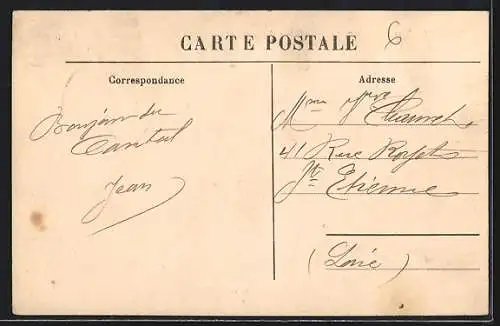 CARTE POSTALE
6
Correspondance
Adresse
Bonjour du
Cantal
Jean
Mme
41 Rue
St Etienne
(Loire)